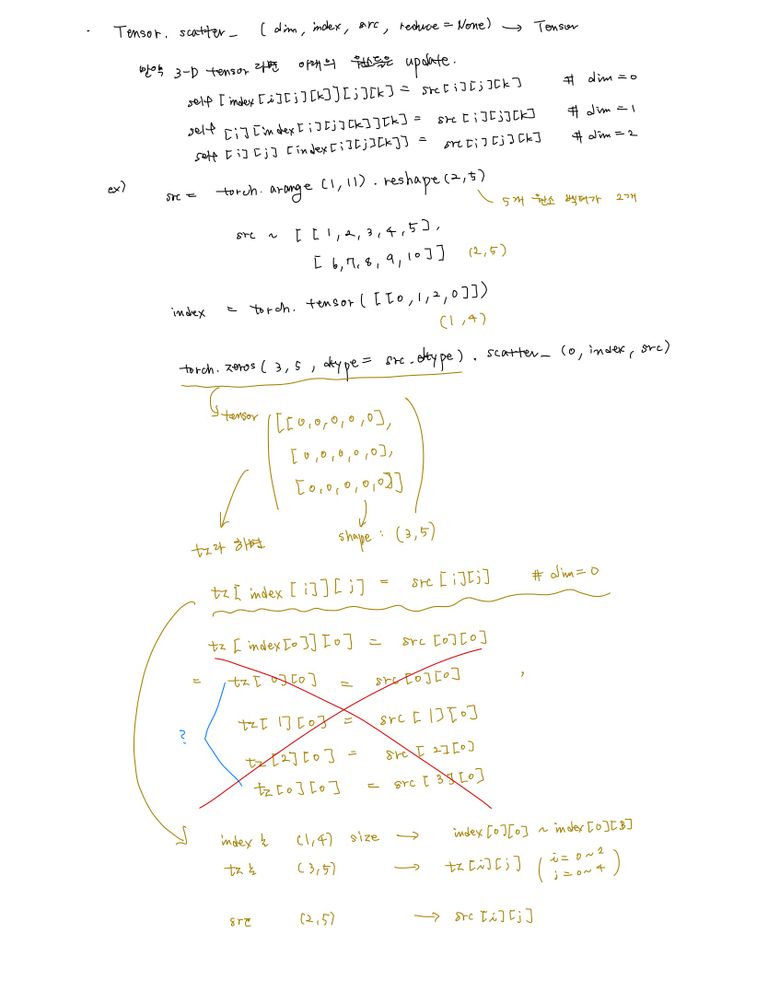 · Tensor. scatter_ ( dim, index, src, reduce = None) → Tensor
만약 3-D tensor 라면 아래의 원소들은 update.
self [index[i][j][k]][j][k] = src[i][j][k] # dim = 0
self [i][index[i][j][k]][k] = src[i][j][k] # dim = 1
self [i][j][index[i][j][k]] = src[i][j][k] # dim = 2
ex) src = torch. arange (1, 11). reshape (2, 5)
5개 원소 벡터가 2개
src ~ [ [ 1, 2, 3, 4, 5],
[ 6, 7, 8, 9, 10]] (2,5)
index = torch. tensor ( [ [0, 1, 2, 0]])
(1,4)
torch. zeros ( 3, 5, dtype = src.dtype). scatter_ (0, index, src)
tensor ( [[0,0,0,0,0],
[0,0,0,0,0],
[0,0,0,0,0]] )
tz라 하면 shape : (3,5)
tz[ index [i]][j] = src[i][j] # dim=0
tz[ index[0]][0] = src[0][0]
= tz[ 0][0] = src[0][0] ,
tz[ 1][0] = src[ 1][0]
?
tz[2][0] = src[ 2][0]
tz[0][0] = src[ 3][0]
index는 (1,4) size → index[0][0] ~ index[0][3]
tz는 (3,5) → tz[i][j] ( i = 0~2
j = 0~4 )
src는 (2,5) → src[i][j]